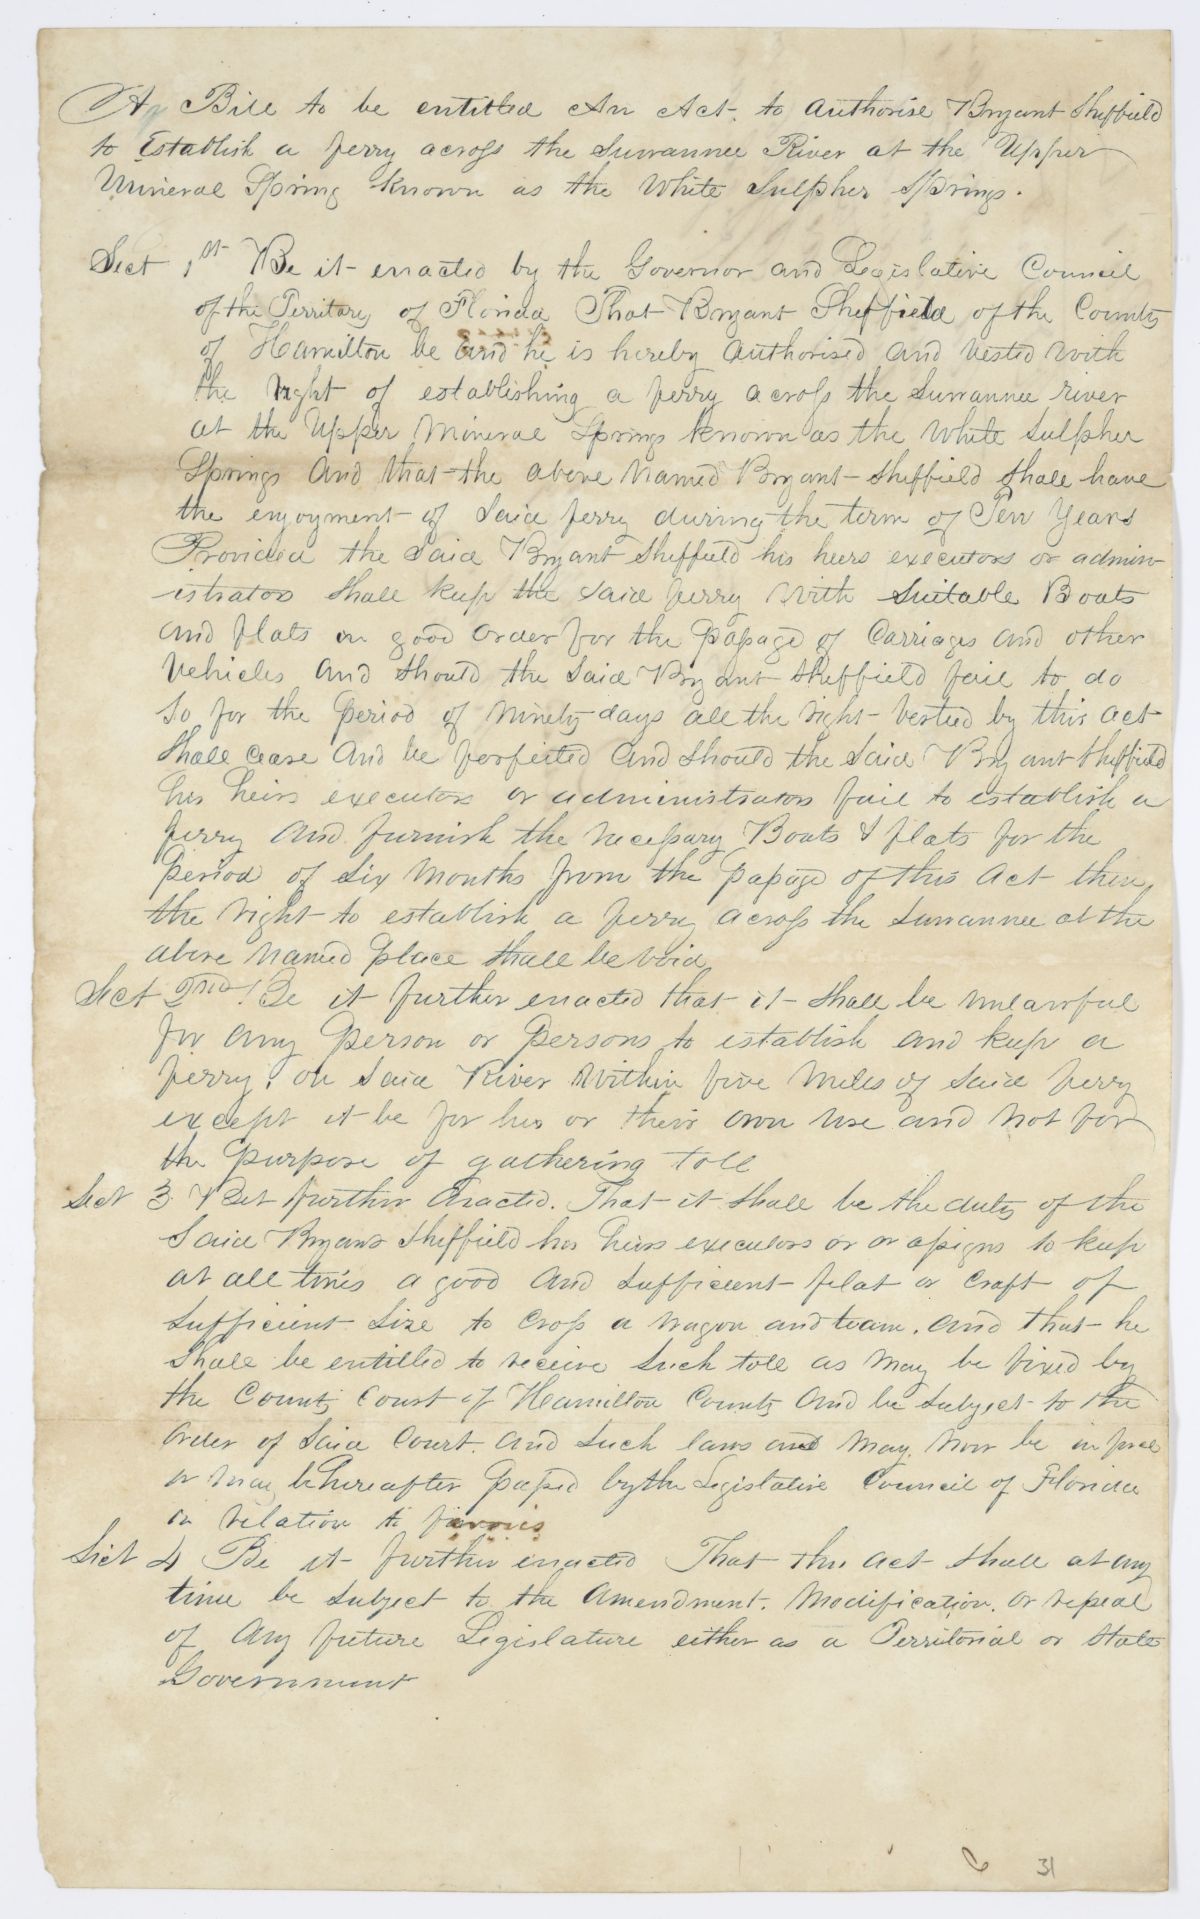 A Bill to be entitled An Act. to authorise Bryant Sheffield
to Establish a ferry across the Suwannee River at the Upper
Mineral Spring known as the White Sulpher Springs.
Sect 1st Be it enacted by the Governor and Legislative Council
of the Territory of Florida That Bryant Sheffield of the County
of Hamilton be and he is hereby authorised and vested with
the right of establishing a ferry across the Suwannee river
at the Upper Mineral Springs known as the White Sulpher
Springs And that the above Named Bryant Sheffield shall have
the enjoyment of Said ferry during the term of Ten Years
Provided the Said Bryant Sheffield his heirs executors or admin-
istrators shall keep the said ferry with suitable Boats
and flats in good order for the passage of Carriages and other
Vehicles And should the Said Bryant Sheffield fail to do
so for the period of ninety days all the right vested by this act
shall cease And be forfeited And should the Said Bryant Sheffield
his heirs executors or administrators fail to establish a
ferry And furnish the necessary Boats & flats for the
period of Six Months from the passage of this Act then
the right to establish a ferry across the Suwannee at the
above Named place shall be void
Sect 2nd Be it further enacted that it shall be unlawful
for any person or persons to establish and keep a
ferry on Said River Within five miles of Said ferry
except it be for his or their own use and not for
the purpose of gathering toll
Sect 3 Bet further Enacted. That it shall be the duty of the
Said Bryant Sheffield his heirs executors or or assigns to keep
at all times a good and sufficient flat or craft of
sufficient size to cross a wagon and team. And that he
shall be entitled to receive such toll as may be fixed by
the County Court of Hamilton County and be subject to the
order of Said Court. And such laws and may now be in force
or may be hereafter passed by the Legislative Council of Florida
in relation to
Sect 4 Be it further enacted That this act shall at any
time be subject to the Amendment. Modification. or repeal
of any future Legislature either as a Territorial or State
Government
6 31